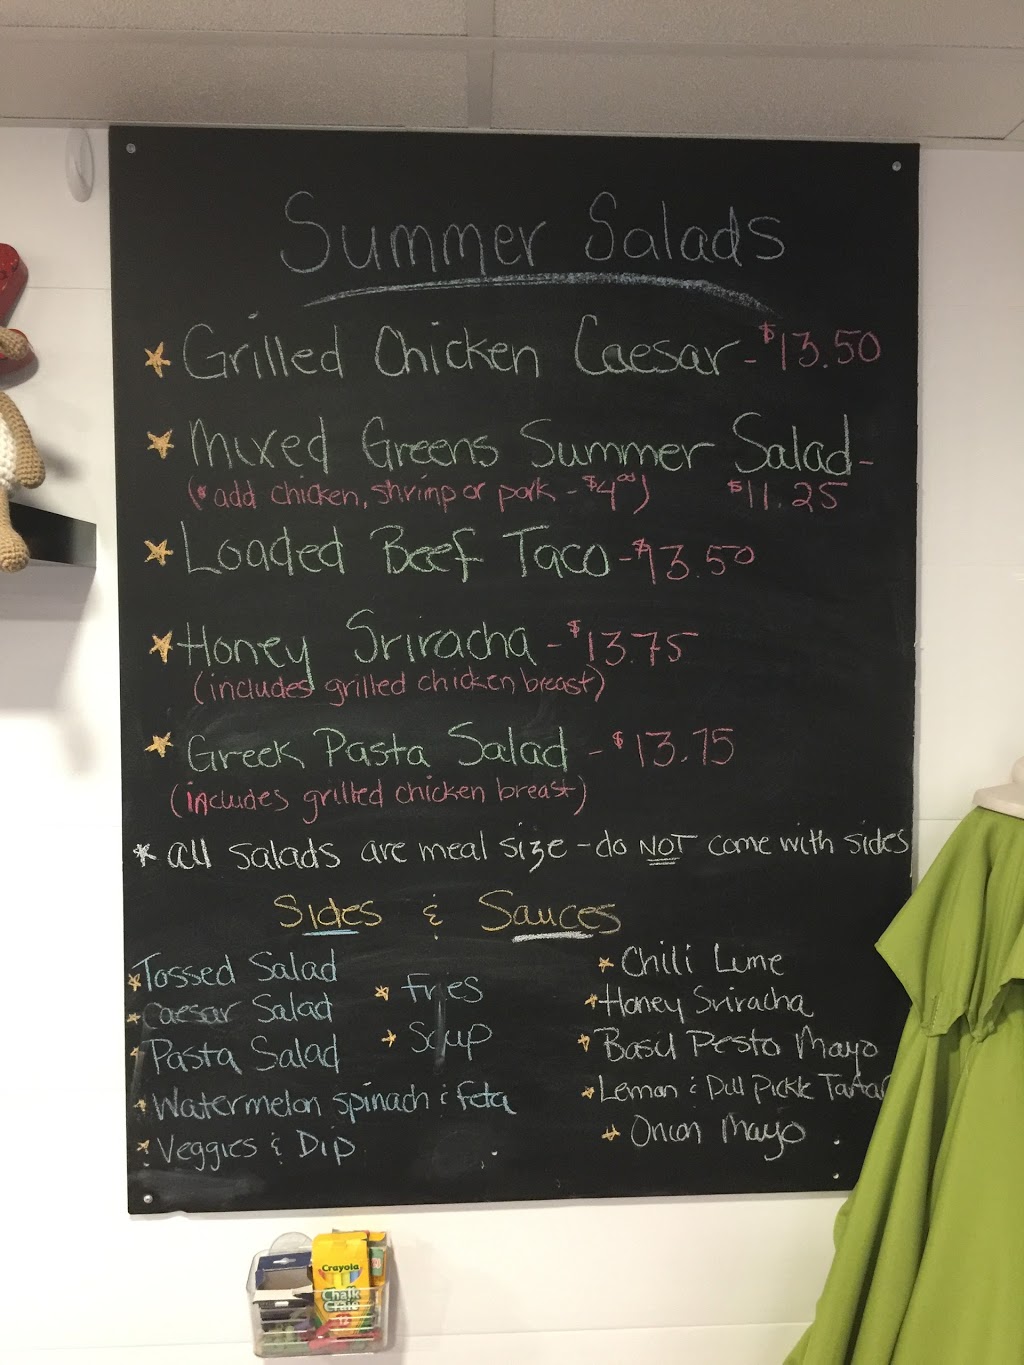 Summer Salads
Grilled Chicken Caesar - $13.50
Mixed Greens Summer Salad -
(* add chicken, shrimp or pork - $4⁰⁰) $11.25
Loaded Beef Taco - $13.50
Honey Sriracha - $13.75
(includes grilled chicken breast)
Greek Pasta Salad - $13.75
(includes grilled chicken breast)
* all salads are meal size - do NOT come with sides
Sides & Sauces
Tossed Salad
Caesar Salad
Pasta Salad
Watermelon spinach & feta
Veggies & Dip
Fries
Soup
Chili Lime
Honey Sriracha
Basil Pesto Mayo
Lemon & Dill Pickle Tartar
Onion Mayo
Crayola
Chalk
Craie
12